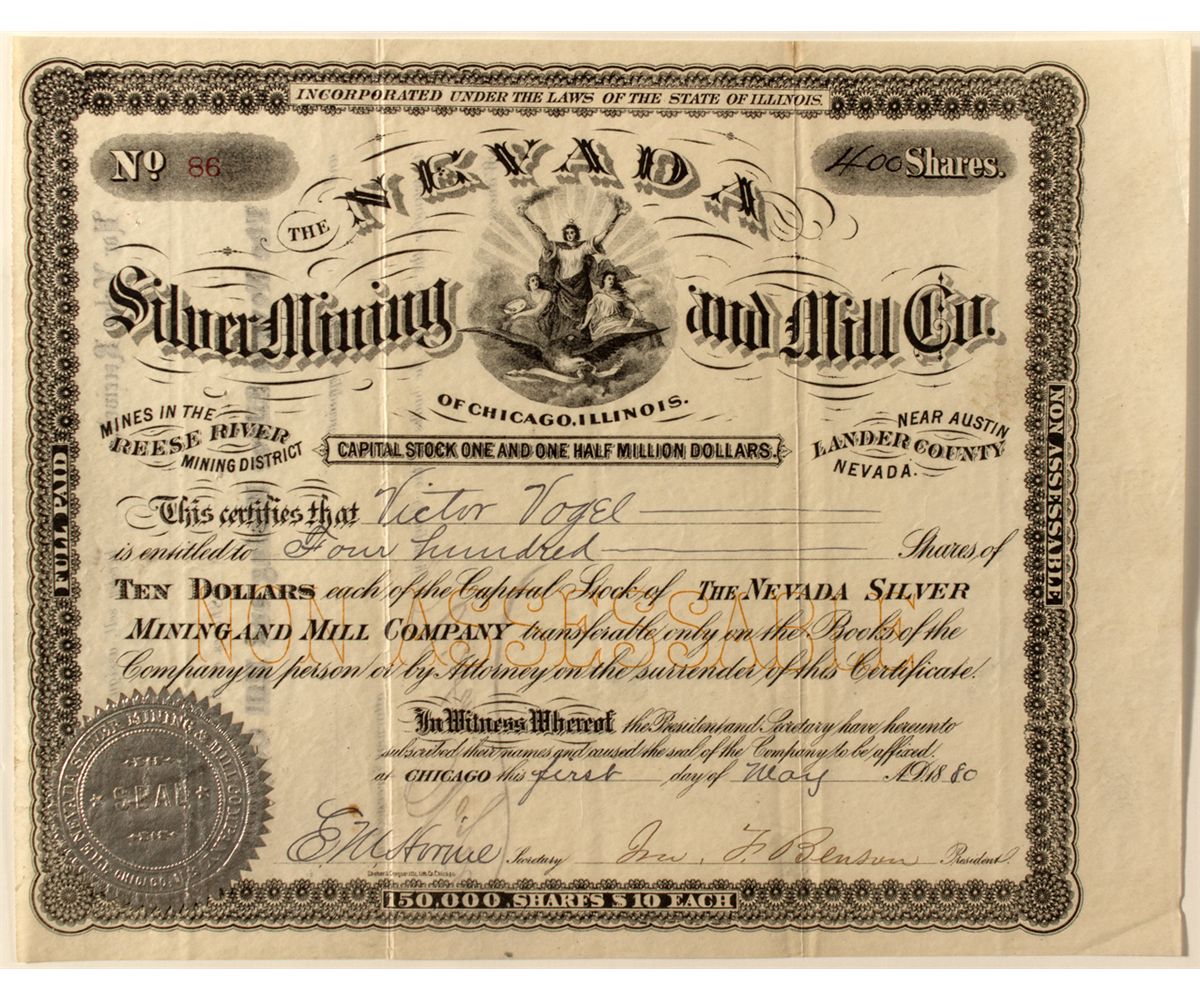 INCORPORATED UNDER THE LAWS OF THE STATE OF ILLINOIS.
No 86
400 Shares.
THE NEVADA
Silver Mining and Mill Co.
OF CHICAGO, ILLINOIS.
MINES IN THE
REESE RIVER
MINING DISTRICT
CAPITAL STOCK ONE AND ONE HALF MILLION DOLLARS.
NEAR AUSTIN
LANDER COUNTY
NEVADA.
FULL PAID
NON ASSESSABLE
This certifies that Victor Vogel
is entitled to Four hundred Shares, of
TEN DOLLARS each of the Capital Stock of THE NEVADA SILVER
MINING AND MILL COMPANY transferable only on the Books of the
Company in person or by Attorney on the surrender of this Certificate.
NON ASSESSABLE
In Witness Whereof the President and Secretary have hereunto
subscribed their names and caused the seal of the Company to be affixed
at CHICAGO this first day of May A.D. 1880
THE NEVADA SILVER MINING & MILL COMPANY
SEAL
CHICAGO, ILL.
Secretary
Jno. F. Benson President.
150,000 SHARES $10 EACH